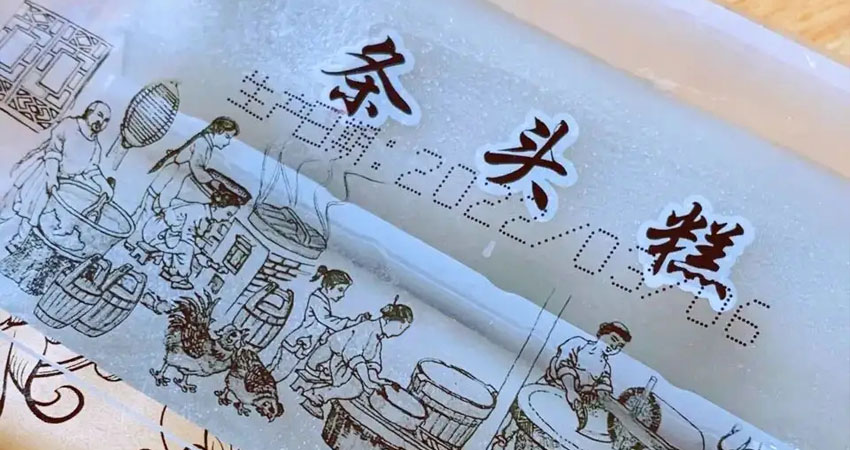 条头糕
生产日期:2022/03/06